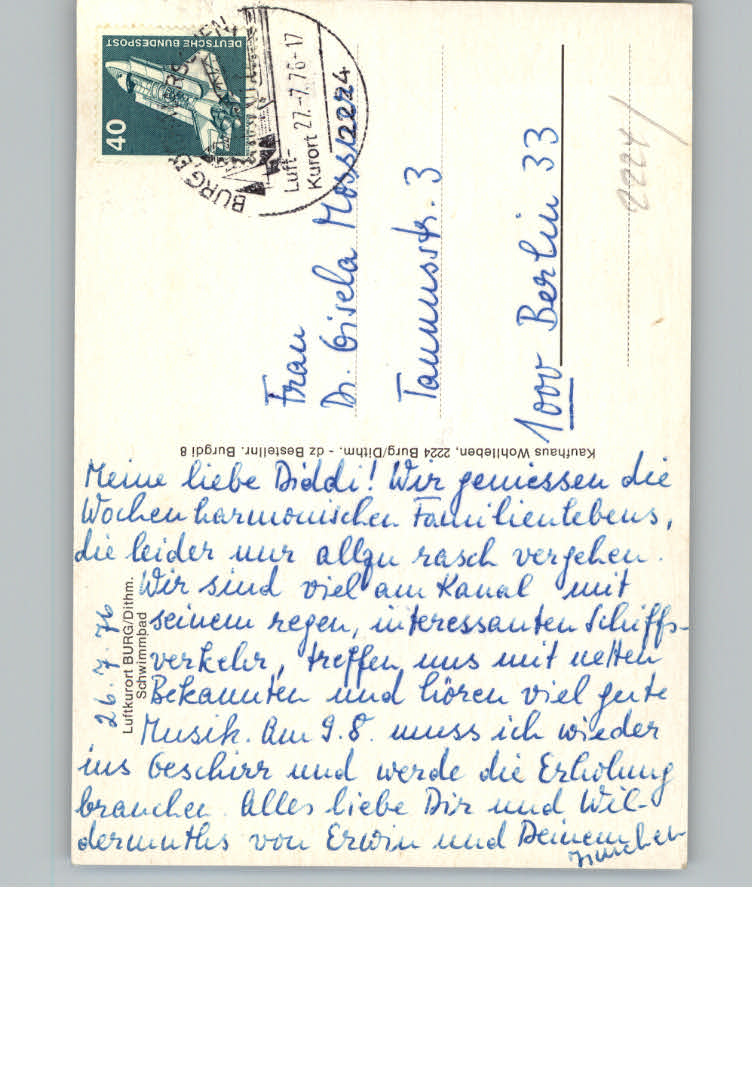 DEUTSCHE BUNDESPOST
40
Luft-
Kurort 27.-7.76-17
2224
Frau
Dr. Gisela
Taunusstr. 3
1000 Berlin 33
2224
Kaufhaus Wohllieben, 2224 Burg/Dithm. - dz Bestellnr. Burgdi 8
26.7.76
Luftkurort BURG/Dithm.
Schwimmbad
Meine liebe Diddi! Wir geniessen die
Wochen harmonischen Familienlebens,
die leider nur allzu rasch vergehen.
Wir sind viel am Kanal mit
seinem regen, interessanten Schiffs-
verkehr, treffen uns mit netten
Bekannten und hören viel gute
Musik. Am 9.8. muss ich wieder
ins Geschirr und werde die Erholung
brauchen. Alles liebe Dir und Wil-
dermuths von Erwin und Deinem